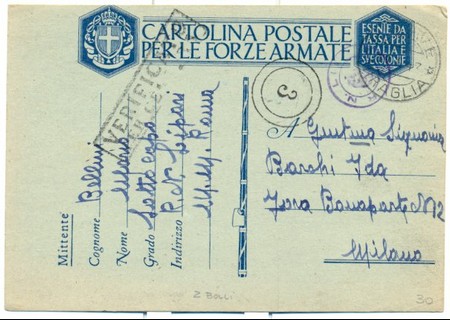 CARTOLINA POSTALE
PER LE FORZE ARMATE
ESENTE DA
TASSA PER
L'ITALIA E
SUE COLONIE
VERIFICATO
3
A Gentma Signoria
Barchi Ida
Foro Bonaparte N 12
Milano
Mittente
Cognome Bellini
Nome Mario
Grado Sottocapo
Indirizzo R. N. Lipari
M.M. Roma
2 BOLLI
30